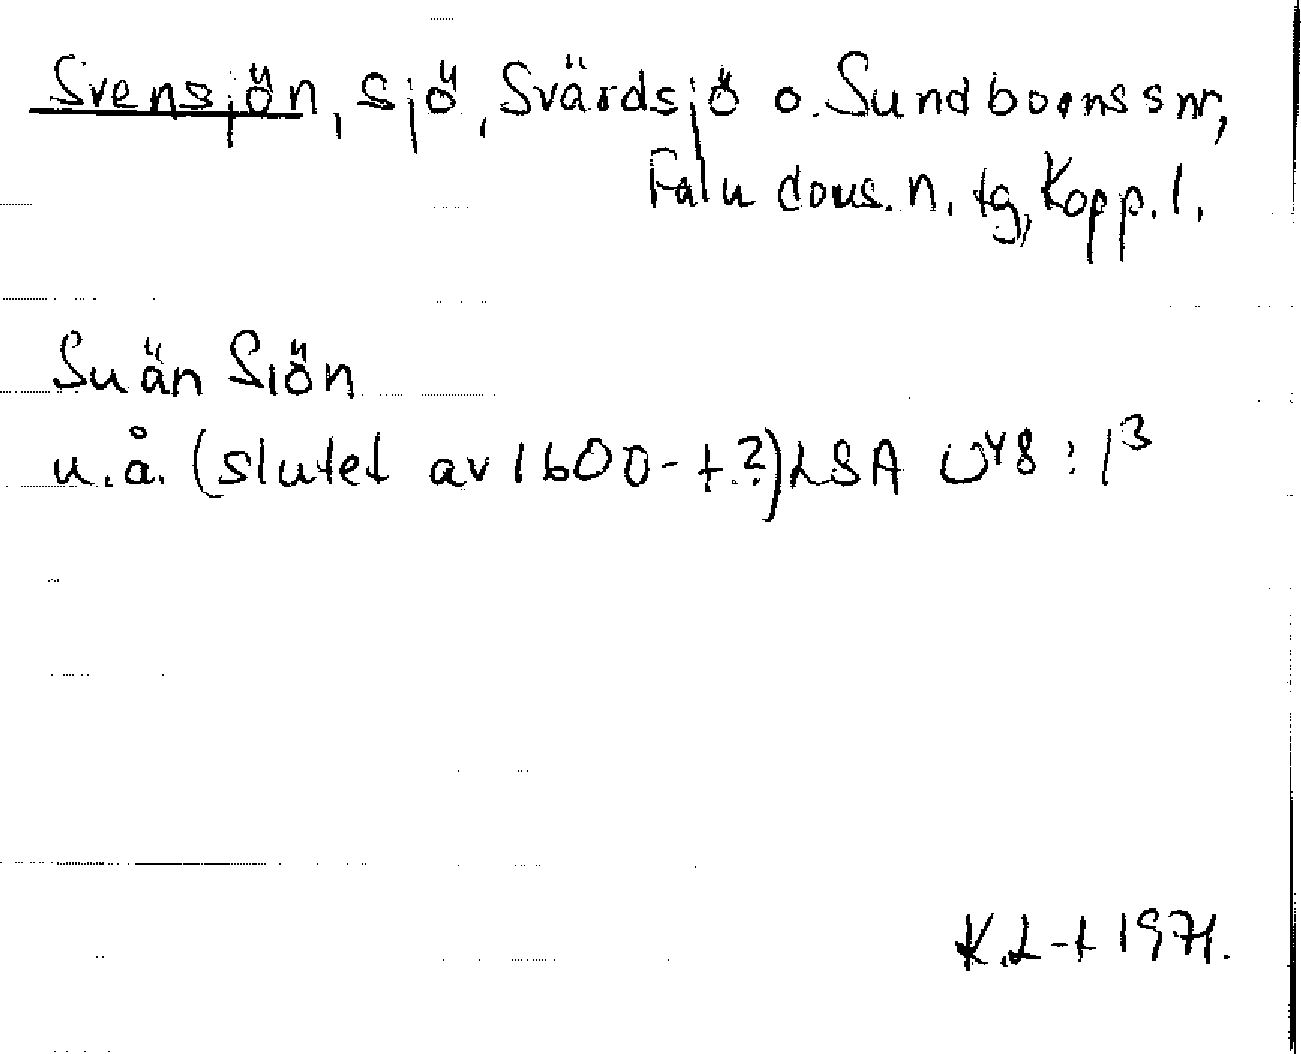 Svensjön, sjö, Svärdsjö o. Sundborns snr,
Falu doms. n. tg, Kopp. l.
Suän Siön
u.å. (slutet av 1600-t.?) LSA U48:1³
K.L-t 1971.